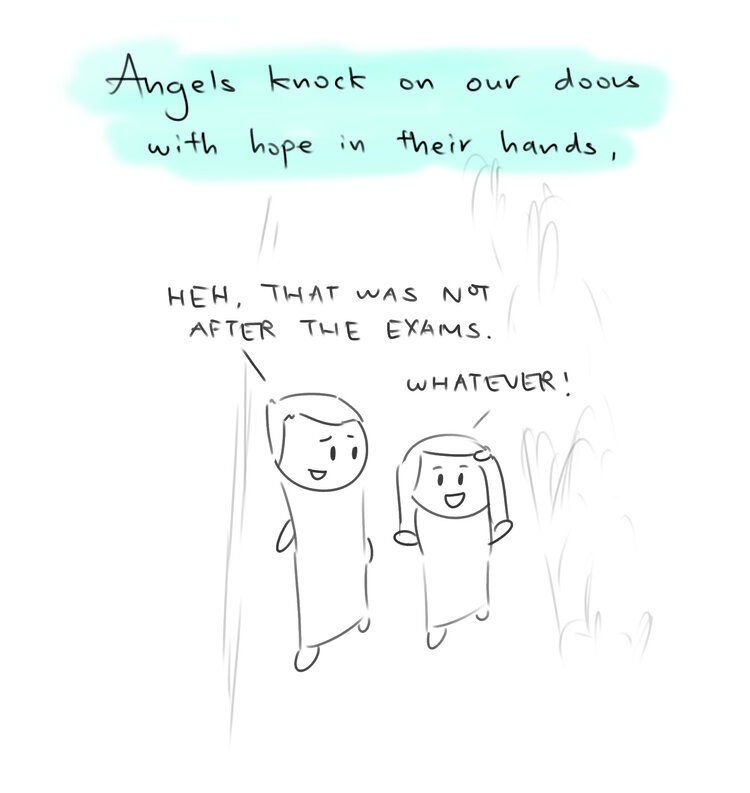 Angels knock on our doors
with hope in their hands,
HEH, THAT WAS NOT
AFTER THE EXAMS.
WHATEVER!